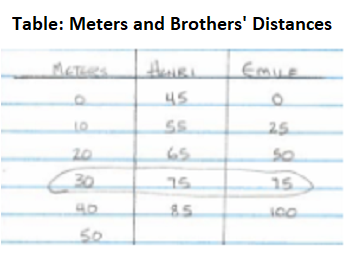 Table: Meters and Brothers' Distances
METERS HENRI EMILE
0 45 0
10 55 25
20 65 50
30 75 75
40 85 100
50